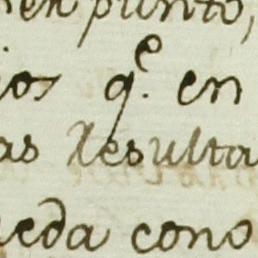 en punto,
ios q.e en
as resulta
ueda cono